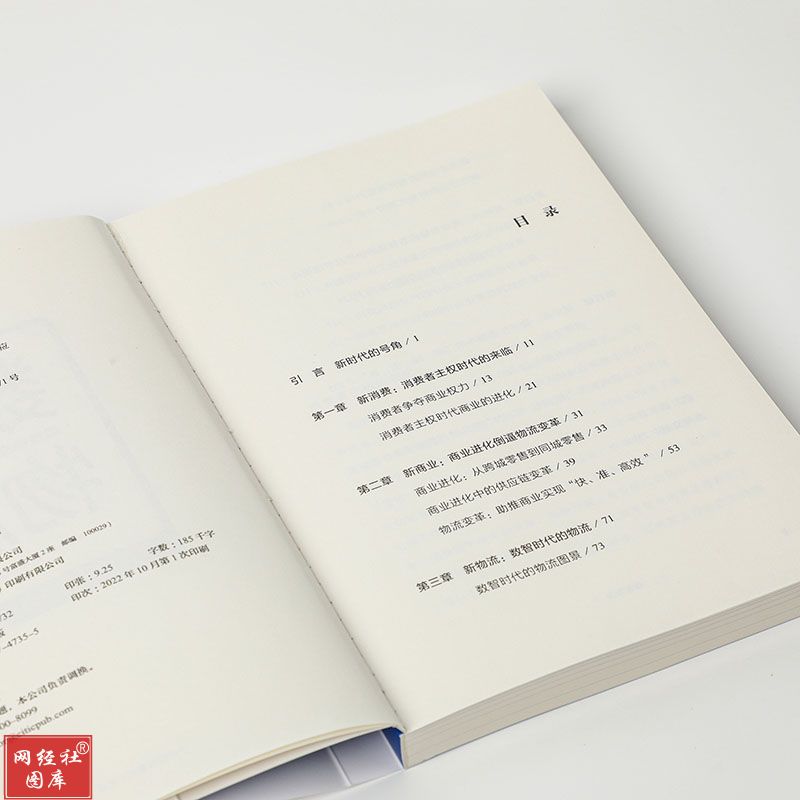 1号
公司
号富盛大厦2座 邮编 100029）
印刷有限公司
印张：9.25 字数：185千字
印次：2022年10月第1次印刷
/32
版
-4735-5
题，本公司负责调换。
00-8099
citicpub.com
目 录
引 言 新时代的号角 / 1
第一章 新消费：消费者主权时代的来临 / 11
消费者争夺商业权力 / 13
消费者主权时代商业的进化 / 21
第二章 新商业：商业进化倒逼物流变革 / 31
商业进化：从跨城零售到同城零售 / 33
商业进化中的供应链变革 / 39
物流变革：助推商业实现“快、准、高效” / 53
第三章 新物流：数智时代的物流 / 71
数智时代的物流图景 / 73
网经社®
图库